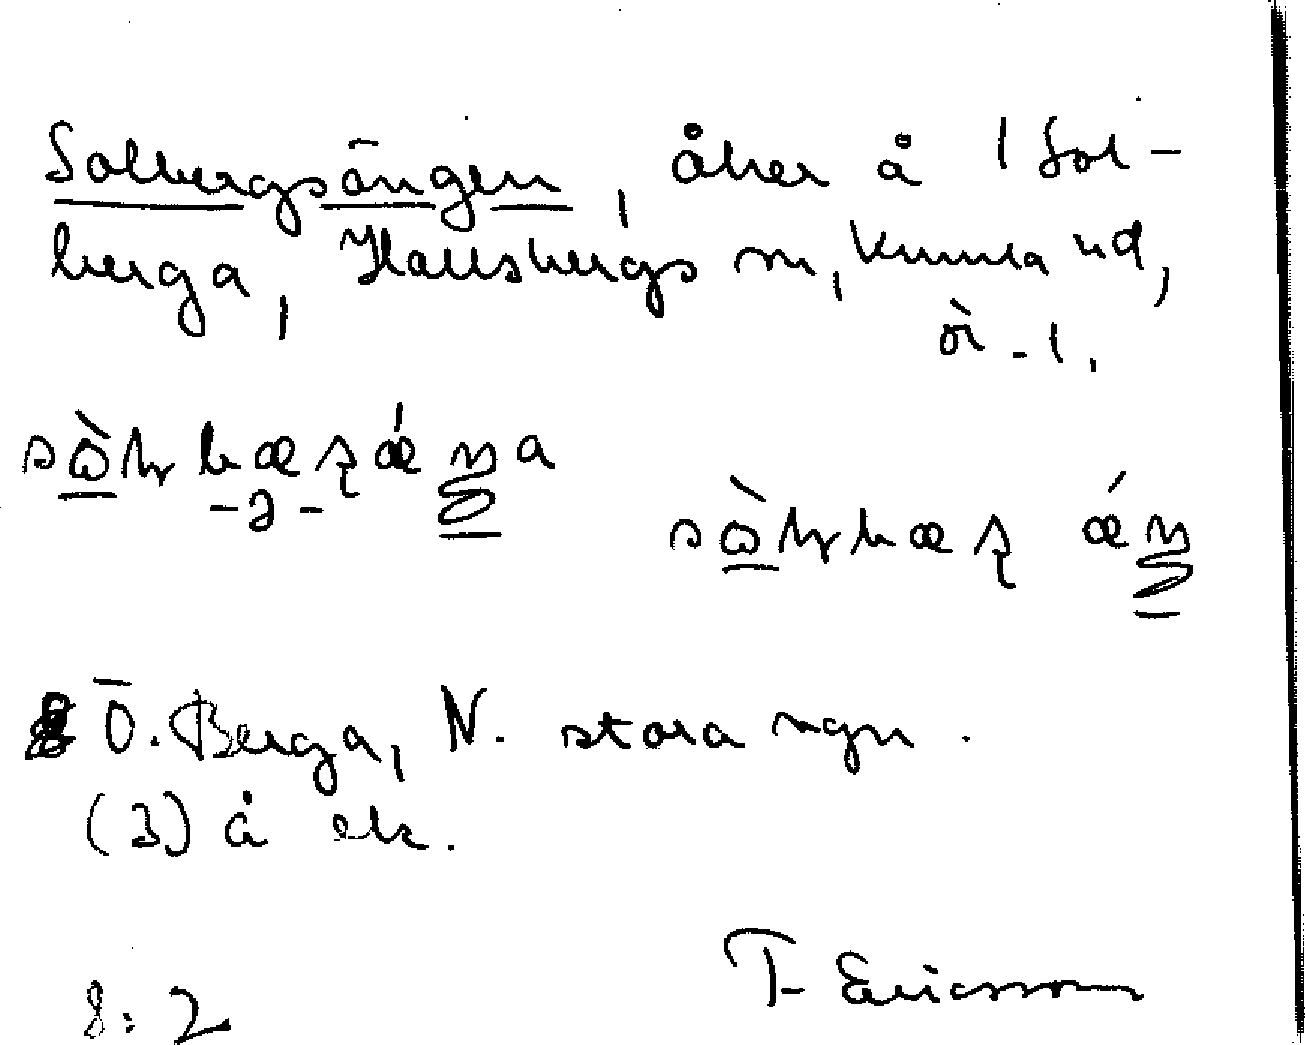 Solbergsängen, åker å 1 Sol-
berga, Hallsbergs sn, Kumla hd,
Ör. l.
Ö. Berga, N. stora vägen.
(3) å ek.
8:2
T. Ericsson